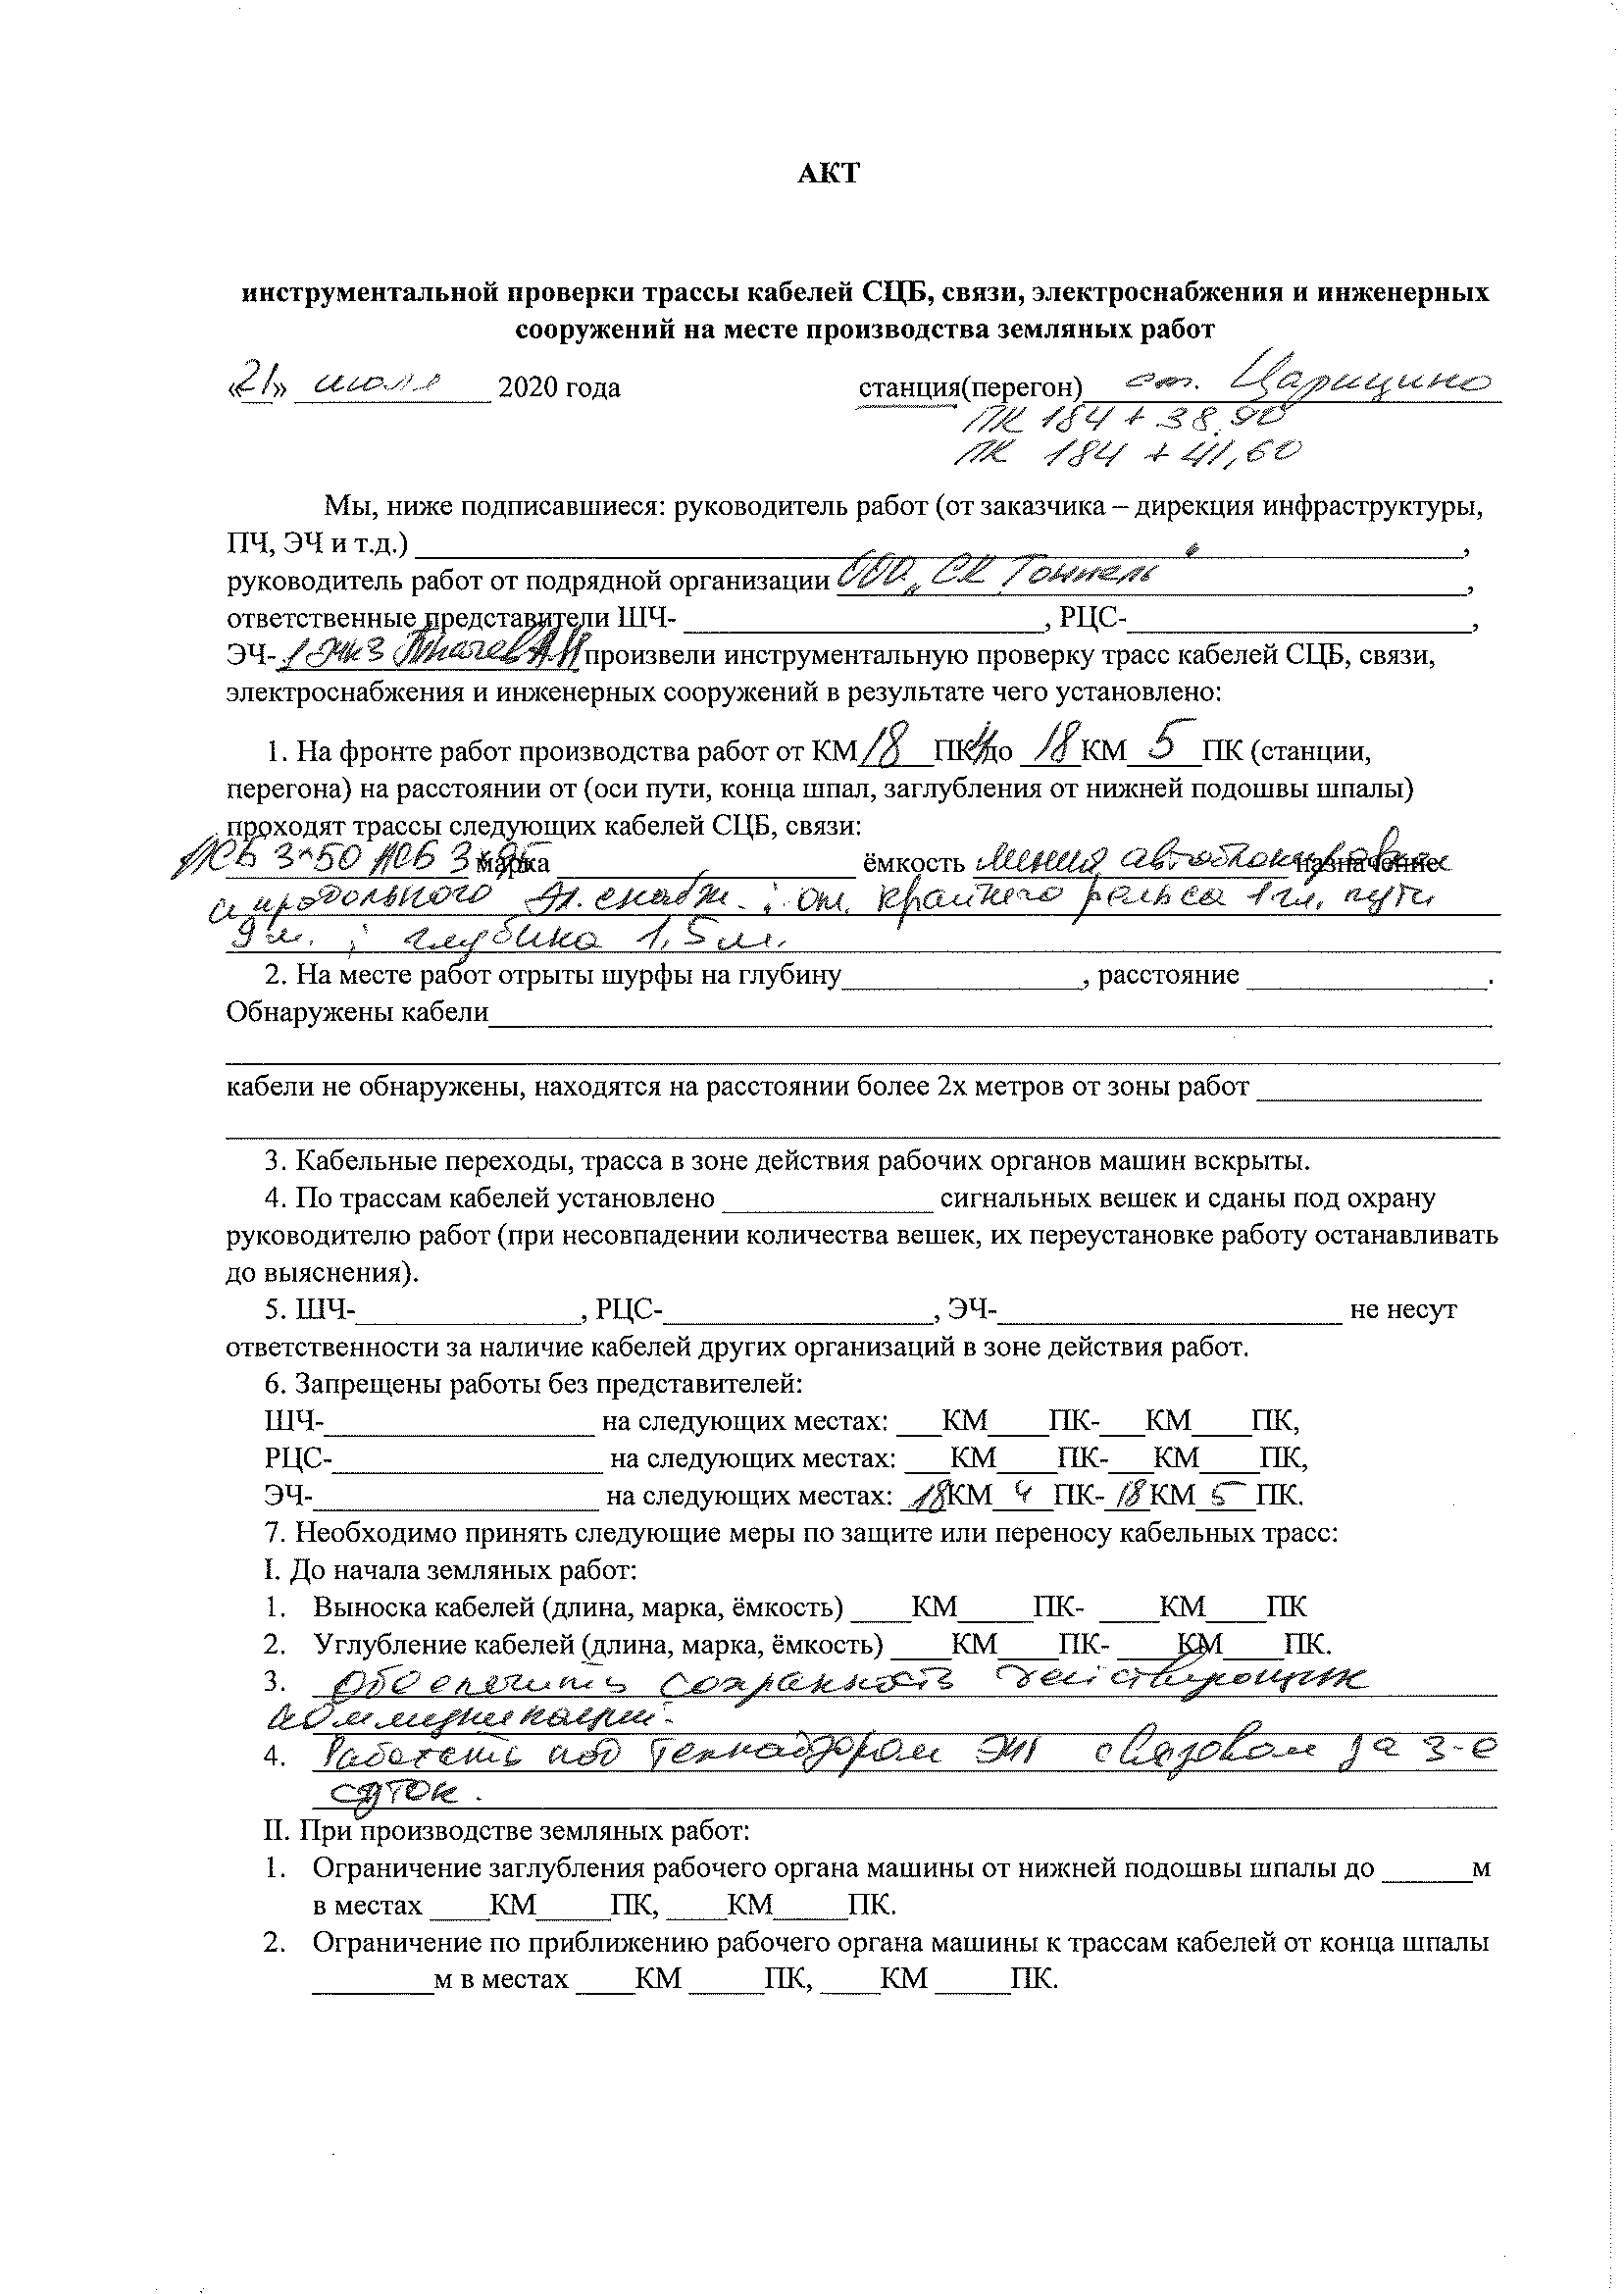 АКТ
инструментальной проверки трассы кабелей СЦБ, связи, электроснабжения и инженерных
сооружений на месте производства земляных работ
«21» июля 2020 года станция(перегон) ст. Царицино
ПК 184 + 38,90
ПК 184 + 41,60
Мы, ниже подписавшиеся: руководитель работ (от заказчика – дирекция инфраструктуры,
ПЧ, ЭЧ и т.д.) ,
руководитель работ от подрядной организации ООО „СК Тоннель ,
ответственные представители ШЧ- , РЦС- ,
ЭЧ-1 эчк3 Ткачев А.И произвели инструментальную проверку трасс кабелей СЦБ, связи,
электроснабжения и инженерных сооружений в результате чего установлено:
1. На фронте работ производства работ от КМ 18 ПК 4 до 18 КМ 5 ПК (станции,
перегона) на расстоянии от (оси пути, конца шпал, заглубления от нижней подошвы шпалы)
проходят трассы следующих кабелей СЦБ, связи:
АСБ 3×50 АСБ 3×95 марка ёмкость линия автоблокировки назначение
и продольного эл. снабж. ; от крайнего рельса 1 гл. пути
9 м. ; глубина 1,5 м.
2. На месте работ отрыты шурфы на глубину , расстояние .
Обнаружены кабели
кабели не обнаружены, находятся на расстоянии более 2х метров от зоны работ
3. Кабельные переходы, трасса в зоне действия рабочих органов машин вскрыты.
4. По трассам кабелей установлено сигнальных вешек и сданы под охрану
руководителю работ (при несовпадении количества вешек, их переустановке работу останавливать
до выяснения).
5. ШЧ- , РЦС- , ЭЧ- не несут
ответственности за наличие кабелей других организаций в зоне действия работ.
6. Запрещены работы без представителей:
ШЧ- на следующих местах: КМ ПК- КМ ПК,
РЦС- на следующих местах: КМ ПК- КМ ПК,
ЭЧ- на следующих местах: 18 КМ 4 ПК- 18 КМ 5 ПК.
7. Необходимо принять следующие меры по защите или переносу кабельных трасс:
I. До начала земляных работ:
1. Выноска кабелей (длина, марка, ёмкость) КМ ПК- КМ ПК
2. Углубление кабелей (длина, марка, ёмкость) КМ ПК- КМ ПК.
3. Обеспечить сохранность действующих
коммуникаций.
4. Работать под технадзором ЭЧ с вызовом за 3-е
суток.
II. При производстве земляных работ:
1. Ограничение заглубления рабочего органа машины от нижней подошвы шпалы до м
в местах КМ ПК, КМ ПК.
2. Ограничение по приближению рабочего органа машины к трассам кабелей от конца шпалы
м в местах КМ ПК, КМ ПК.